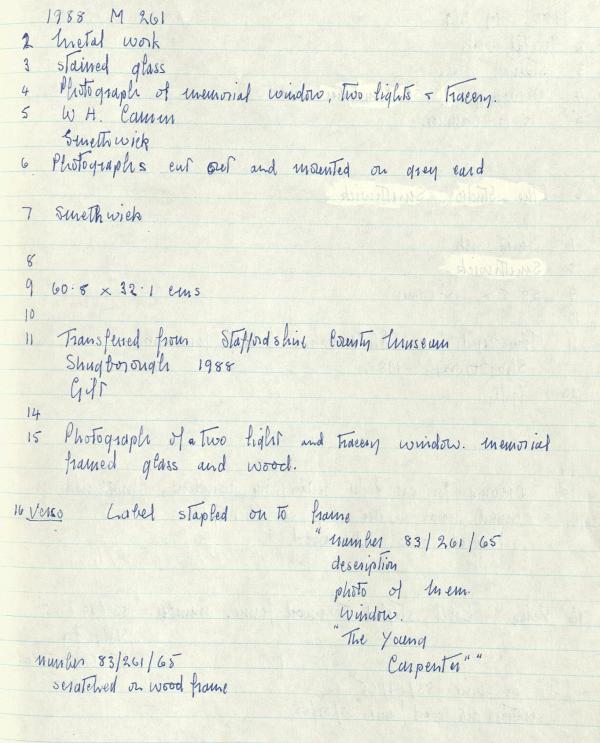 1988 M 261
2 metal work
3 stained glass
4 Photograph of memorial window, two lights & tracery.
5 W H. Camm
Smethwick
6 Photographs cut out and mounted on grey card
7 Smethwick
8
9 60.8 x 32.1 cms
10
11 Transferred from Staffordshire County Museum
Shugborough 1988
Gift
14
15 Photograph of a two light and tracery window. memorial
framed glass and wood.
16 Verso Label stapled on to frame
"number 83/261/65
description
photo of mem.
window.
"The Young
Carpenter""
number 83/261/65
scratched on wood frame